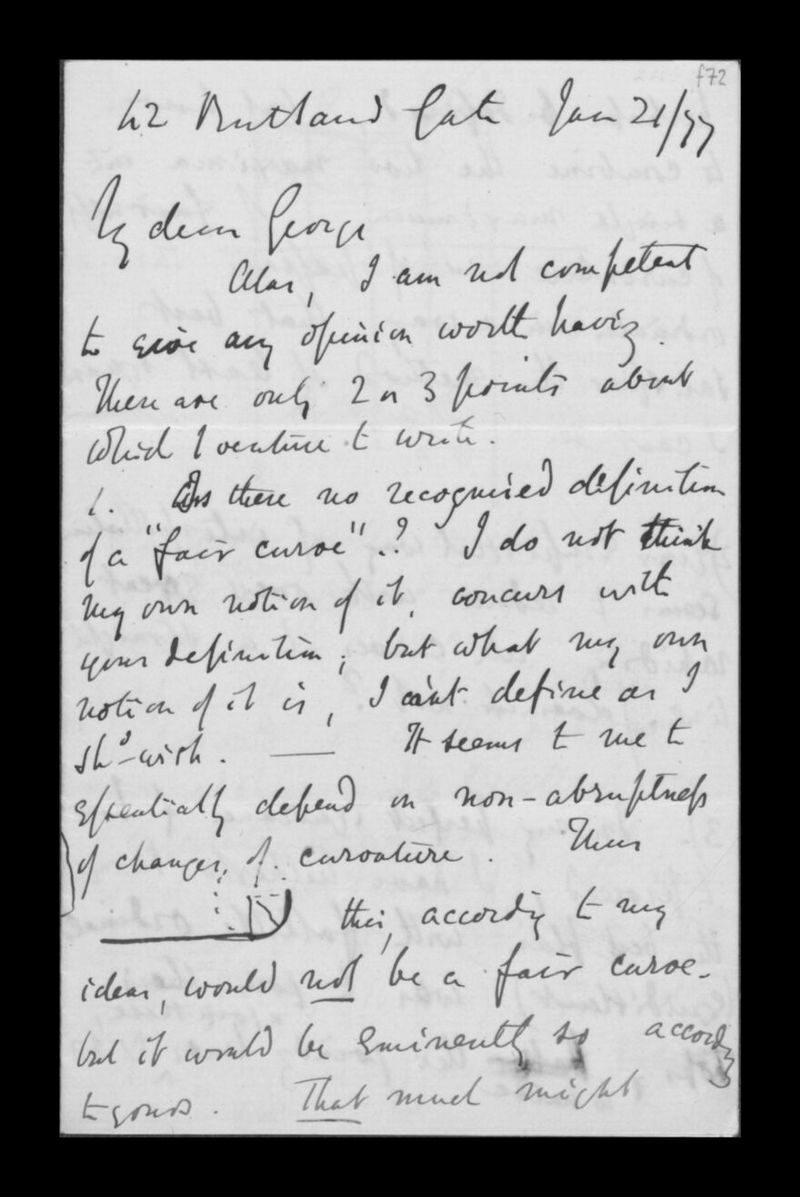 f72
42 Rutland Gate Jan 21/77
My dear George
Alas, I am not competent
to give any opinion worth having.
There are only 2 or 3 points about
which I venture to write.
1. Is there no recognised definition
of a "fair curve"? I do not think
my own notion of it, concurs with
your definition; but what my own
notion of it is, I can't define as I
shd wish. — It seems to me to
essentially depend on non-abruptness
of changes of curvature. Thus
this, according to my
ideas, would not be a fair curve.
but it would be eminently so according
to yours. That much might